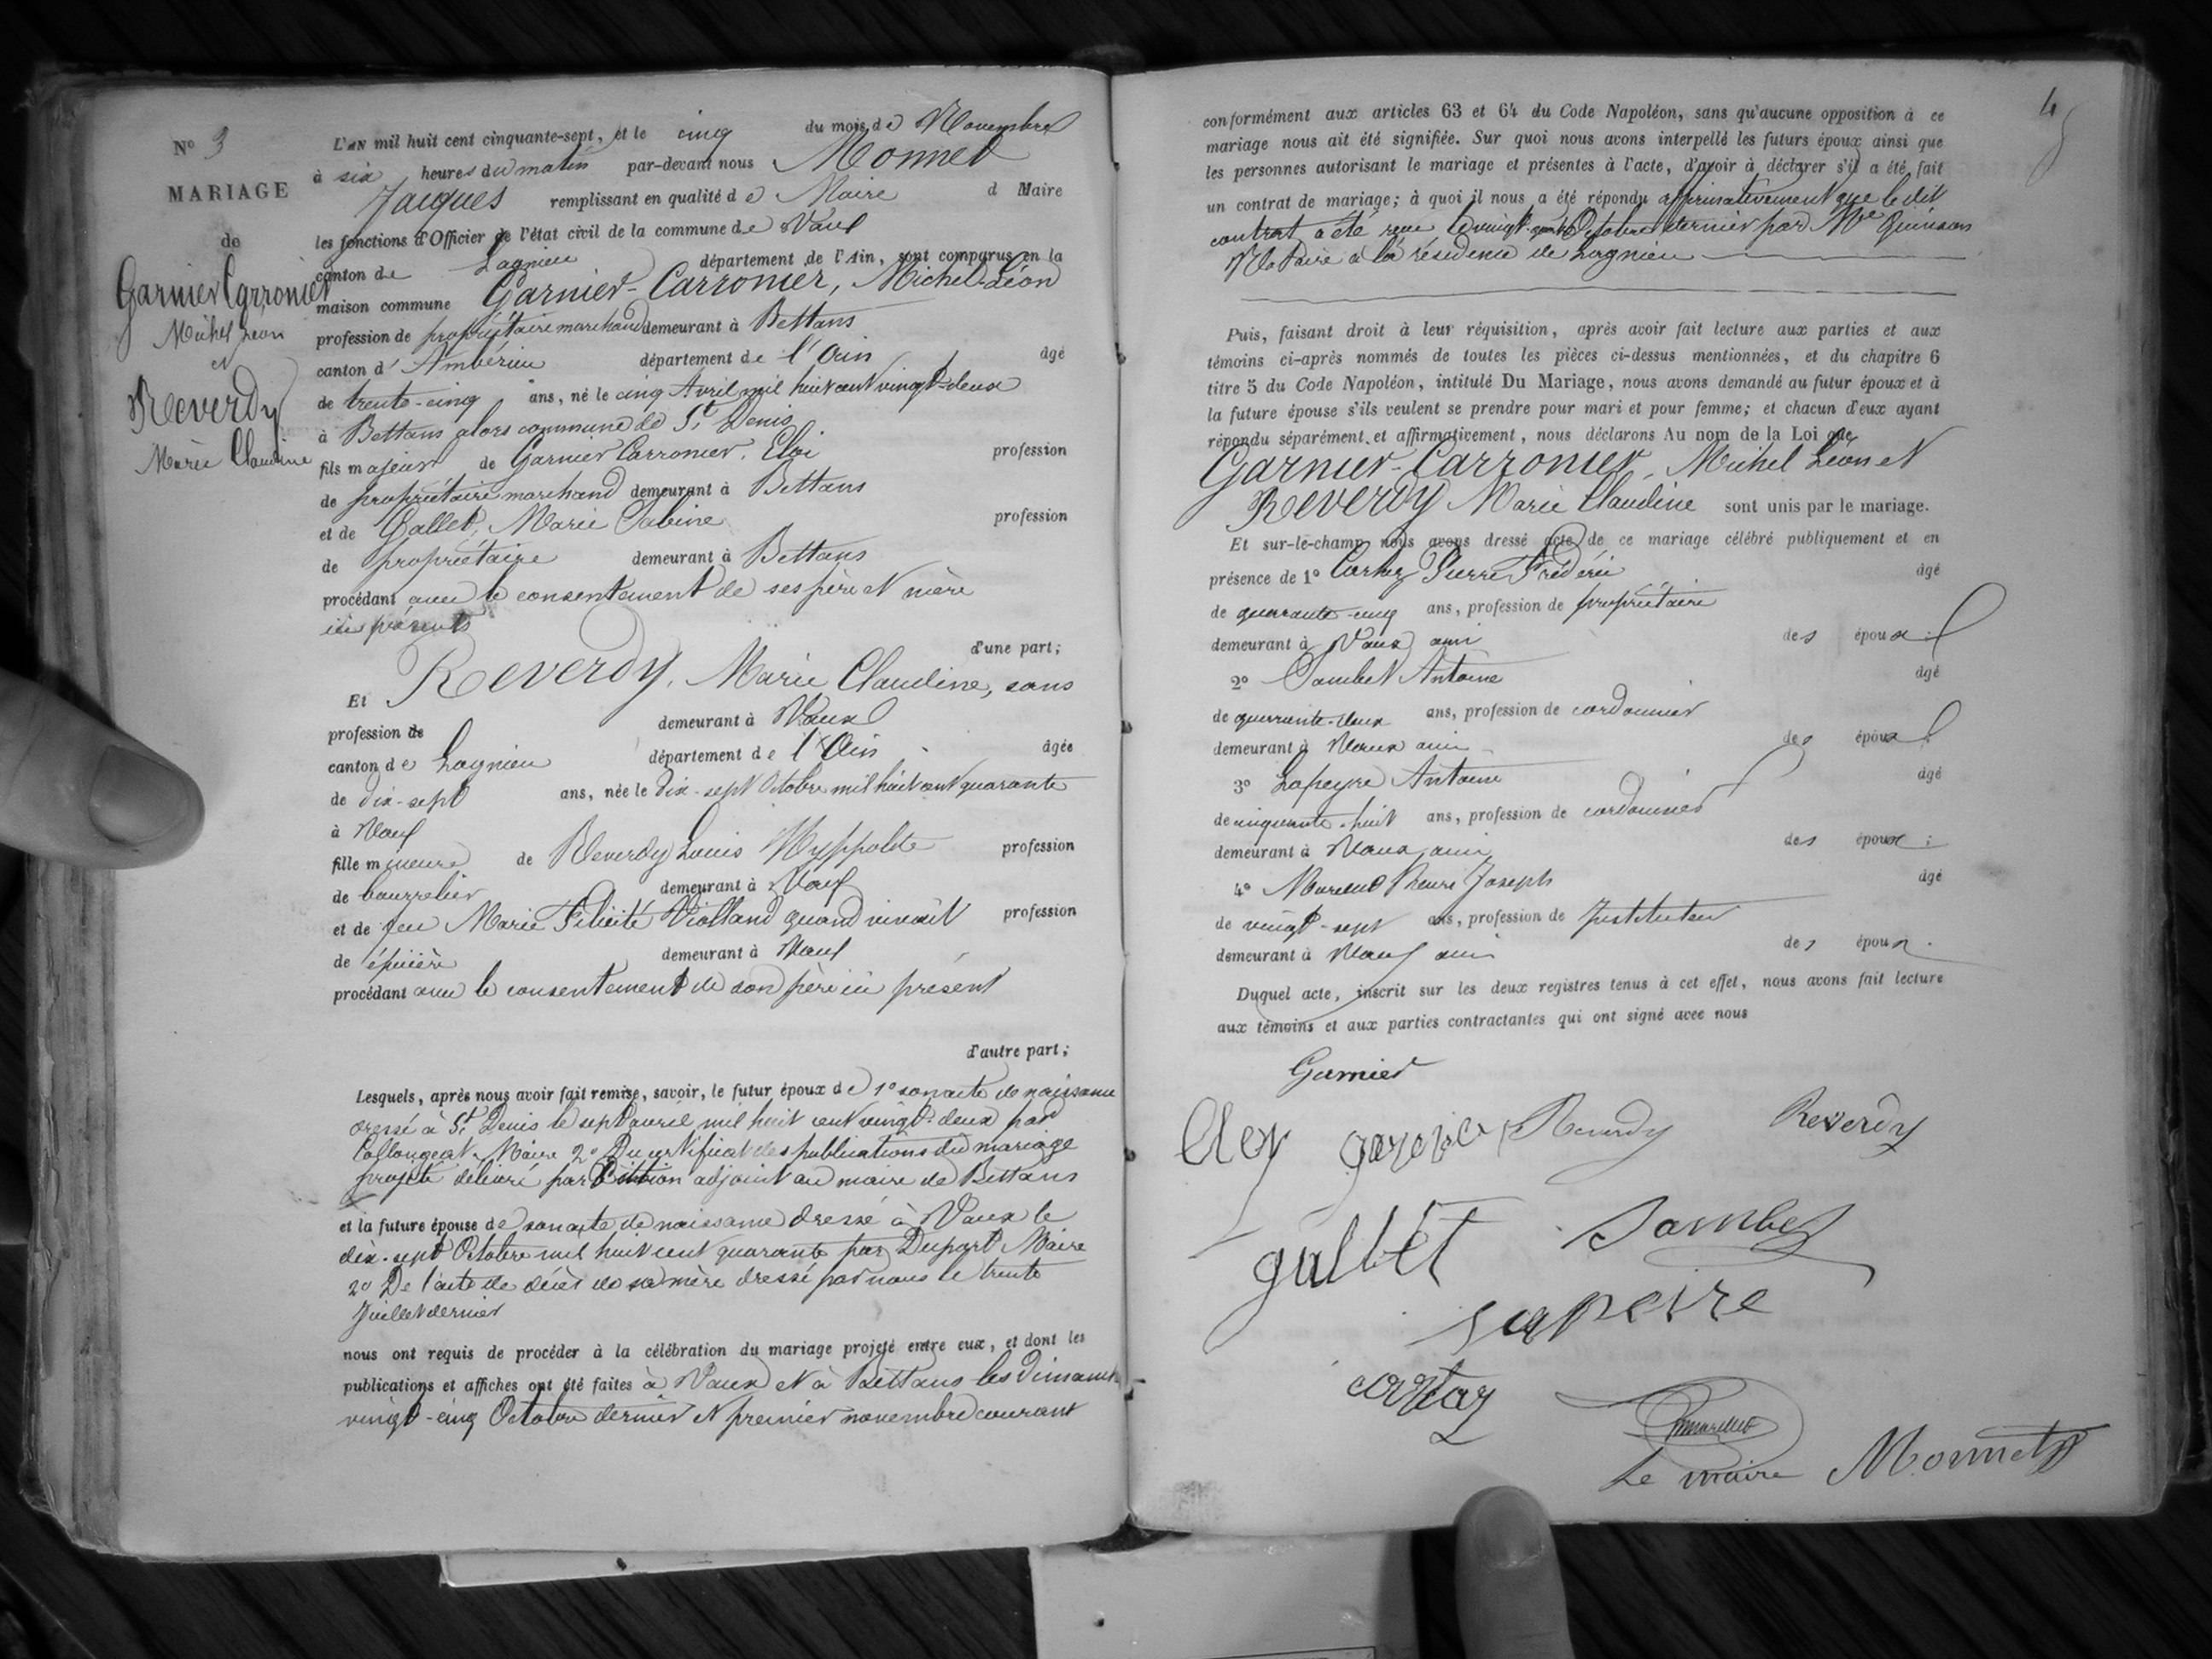 N° 3
MARIAGE
de
Garnier Carronier
Michel Léon
et
Reverdy
Marie Claudine
L'AN mil huit cent cinquante-sept, et le cinq du mois de Novembre
à six heures du matin par-devant nous Monnet
Jacques remplissant en qualité de Maire d Maire
les fonctions d'Officier de l'état civil de la commune de Vaux
canton de Lagnieu département de l'Ain, sont comparus en la
maison commune Garnier-Carronier, Michel-Léon
profession de propriétaire marchand demeurant à Bettans
canton d'Ambérieu département de l'Ain âgé
de trente-cinq ans, né le cinq Avril mil huit cent vingt-deux
à Bettans alors commune de St Denis
fils majeur de Garnier Carronier, Eloi profession
de propriétaire marchand demeurant à Bettans
et de Gallet, Marie Sabine profession
de propriétaire demeurant à Bettans
procédant avec le consentement de ses père et mère
ici présents
d'une part;
Et Reverdy, Marie Claudine, sans
profession de demeurant à Vaux
canton de Lagnieu département de l'Ain âgée
de dix-sept ans, née le dix-sept Octobre mil huit cent quarante
à Vaux
fille mineure de Reverdy Louis Hyppolite profession
de bourrelier demeurant à Vaux
et de feu Marie Félicité Violland quand vivait profession
de épicière demeurant à Vaux
procédant avec le consentement de son père ici présent
d'autre part;
Lesquels, après nous avoir fait remise, savoir, le futur époux de 1° son acte de naissance
dressé à St Denis le sept avril mil huit cent vingt-deux par
Collongeat Maire 2° Du certificat des publications du mariage
projeté délivré par adjoint au maire de Bettans
et la future épouse de son acte de naissance dressé à Vaux le
dix-sept Octobre mil huit cent quarante par Dupart Maire
2° De l'acte de décès de sa mère dressé par nous le trente
Juillet dernier
nous ont requis de procéder à la célébration du mariage projeté entre eux, et dont les
publications et affiches ont été faites à Vaux et à Bettans les dimanches
vingt-cinq Octobre dernier et premier novembre courant
4
conformément aux articles 63 et 64 du Code Napoléon, sans qu'aucune opposition à ce
mariage nous ait été signifiée. Sur quoi nous avons interpellé les futurs époux ainsi que
les personnes autorisant le mariage et présentes à l'acte, d'avoir à déclarer s'il a été fait
un contrat de mariage; à quoi il nous a été répondu affirmativement que le dit
contrat a été reçu le vingt- Octobre dernier par Me Quinson
Notaire à la résidence de Lagnieu
Puis, faisant droit à leur réquisition, après avoir fait lecture aux parties et aux
témoins ci-après nommés de toutes les pièces ci-dessus mentionnées, et du chapitre 6
titre 5 du Code Napoléon, intitulé Du Mariage, nous avons demandé au futur époux et à
la future épouse s'ils veulent se prendre pour mari et pour femme; et chacun d'eux ayant
répondu séparément et affirmativement, nous déclarons Au nom de la Loi que
Garnier-Carronier, Michel Léon et
Reverdy Marie Claudine sont unis par le mariage.
Et sur-le-champ nous avons dressé acte de ce mariage célébré publiquement et en
présence de 1° Cortey Pierre Frédéric âgé
de quarante-cinq ans, profession de propriétaire
demeurant à Vaux ami des époux
2° Sambet Antoine âgé
de quarante-deux ans, profession de cordonnier
demeurant à Vaux ami des époux
3° Lapeyre Antoine âgé
de cinquante-huit ans, profession de cordonnier
demeurant à Vaux, ami des époux;
4° Henri Joseph âgé
de vingt-sept ans, profession de Instituteur
demeurant à Vaux ami des époux.
Duquel acte, inscrit sur les deux registres tenus à cet effet, nous avons fait lecture
aux témoins et aux parties contractantes qui ont signé avec nous
Garnier
Reverdy Reverdy
gallet Sambet
Lapeire
Le maire Monnet